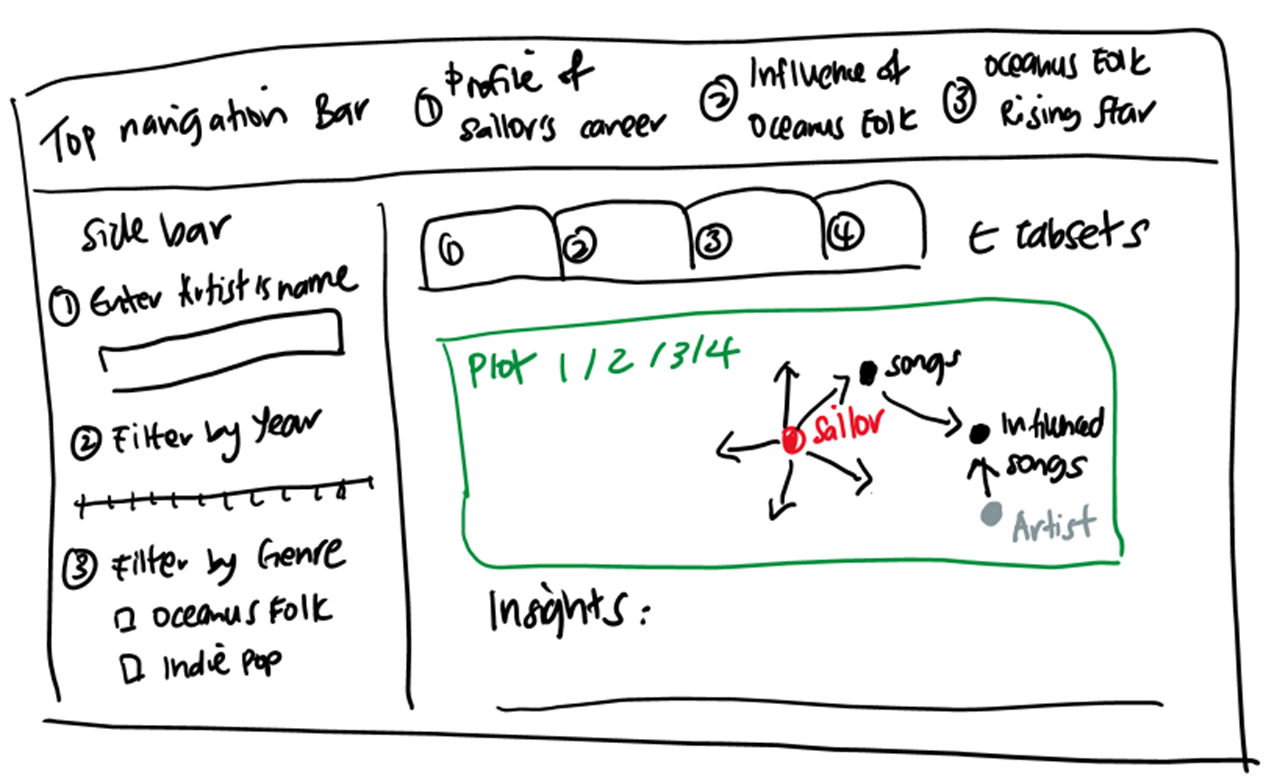 Top navigation Bar
① Profile of
Sailor's career
② Influence of
Oceanus Folk
③ Oceanus Folk
Rising Star
Side bar
① Enter Artist's name
② Filter by Year
③ Filter by Genre
Oceanus Folk
Indie Pop
① ② ③ ④
← tabsets
Plot 1 / 2 / 3 / 4
songs
Sailor
Influnced
songs
Artist
Insights: